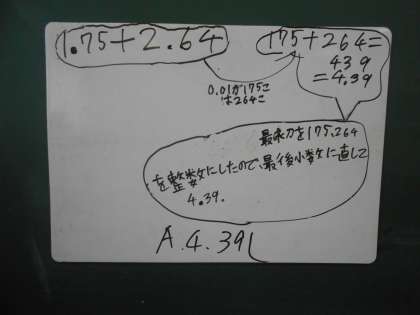 1.75+2.64
175+264=
439
=4.39
0.01が175こ
は264こ
最初を175.264
を整数にしたので、最後小数に直して
4.39.
A.4.39L